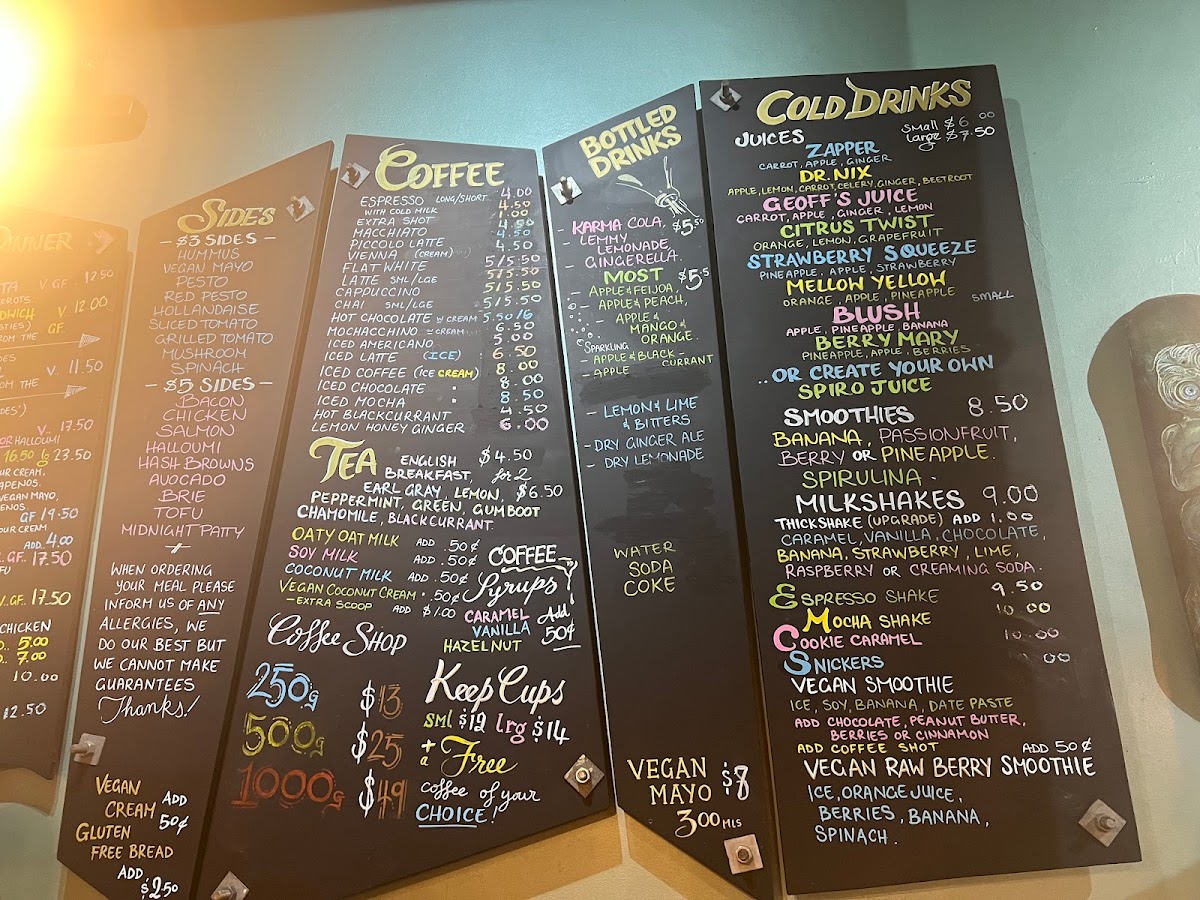 DINNER
V. GF. 12.50
V. 12.00
GF
FROM THE
V. 11.50
FROM THE
V.. 17.50
OR HALLOUMI
16.50 lg 23.50
OUR CREAM,
VEGAN MAYO,
GF 19.50
OUR CREAM
ADD 4.00
GF.. 17.50
V.. GF.. 17.50
CHICKEN
5.00
7.00
10.00
12.50
SIDES
- $3 SIDES -
HUMMUS
VEGAN MAYO
PESTO
RED PESTO
HOLLANDAISE
SLICED TOMATO
GRILLED TOMATO
MUSHROOM
SPINACH
- $5 SIDES -
BACON
CHICKEN
SALMON
HALLOUMI
HASH BROWNS
AVOCADO
BRIE
TOFU
MIDNIGHT PATTY
WHEN ORDERING
YOUR MEAL PLEASE
INFORM US OF ANY
ALLERGIES, WE
DO OUR BEST BUT
WE CANNOT MAKE
GUARANTEES
Thanks!
VEGAN
CREAM ADD 50¢
GLUTEN
FREE BREAD
ADD $2.50
COFFEE
ESPRESSO LONG/SHORT 4.00
WITH COLD MILK 4.50
EXTRA SHOT 1.00
MACCHIATO 4.50
PICCOLO LATTE 4.50
VIENNA (CREAM) 4.50
FLAT WHITE 5/5.50
LATTE SML/LGE 5/5.50
CAPPUCCINO 5/5.50
CHAI SML/LGE 5/5.50
HOT CHOCOLATE W CREAM 5.50/6
MOCHACCHINO W CREAM 6.50
ICED AMERICANO 5.00
ICED LATTE (ICE) 6.50
ICED COFFEE (ICE CREAM) 8.00
ICED CHOCOLATE " 8.00
ICED MOCHA " 8.50
HOT BLACKCURRANT 4.50
LEMON HONEY GINGER 6.00
TEA ENGLISH BREAKFAST, $4.50
EARL GRAY, LEMON, for 2 $6.50
PEPPERMINT, GREEN, GUMBOOT
CHAMOMILE, BLACKCURRANT.
OATY OAT MILK ADD .50¢
SOY MILK ADD .50¢
COCONUT MILK ADD .50¢
VEGAN COCONUT CREAM .50¢
- EXTRA SCOOP ADD $1.00
COFFEE
Syrups
CARAMEL
VANILLA
HAZELNUT
Add 50¢
Coffee Shop
250g $13
500g $25
1000g $49
Keep Cups
sml $12 lrg $14
+ a Free
coffee of your
CHOICE!
BOTTLED
DRINKS
KARMA COLA, $5.50
- LEMMY
LEMONADE,
- GINGERELLA.
MOST $5.5
- APPLE & FEIJOA,
APPLE & PEACH,
- APPLE &
MANGO &
ORANGE.
SPARKLING
- APPLE & BLACK-CURRANT
- APPLE
- LEMON & LIME
& BITTERS
- DRY GINGER ALE
- DRY LEMONADE
WATER
SODA
COKE
VEGAN
MAYO $8
300 MLS
COLD DRINKS
JUICES small $6.00
large $7.50
ZAPPER
CARROT, APPLE, GINGER
DR. NIX
APPLE, LEMON, CARROT, CELERY, GINGER, BEETROOT
GEOFF'S JUICE
CARROT, APPLE, GINGER, LEMON
CITRUS TWIST
ORANGE, LEMON, GRAPEFRUIT
STRAWBERRY SQUEEZE
PINEAPPLE, APPLE, STRAWBERRY
MELLOW YELLOW
ORANGE, APPLE, PINEAPPLE SMALL
BLUSH
APPLE, PINEAPPLE, BANANA
BERRY MARY
PINEAPPLE, APPLE, BERRIES
..OR CREATE YOUR OWN
SPIRO JUICE
SMOOTHIES 8.50
BANANA, PASSIONFRUIT,
BERRY OR PINEAPPLE.
SPIRULINA.
MILKSHAKES 9.00
THICKSHAKE (UPGRADE) ADD 1.00
CARAMEL, VANILLA, CHOCOLATE,
BANANA, STRAWBERRY, LIME,
RASPBERRY OR CREAMING SODA.
ESPRESSO SHAKE 9.50
MOCHA SHAKE 10.00
COOKIE CARAMEL 10.00
SNICKERS 00
VEGAN SMOOTHIE
ICE, SOY, BANANA, DATE PASTE
ADD CHOCOLATE, PEANUT BUTTER,
BERRIES OR CINNAMON
ADD COFFEE SHOT ADD 50¢
VEGAN RAW BERRY SMOOTHIE
ICE, ORANGE JUICE,
BERRIES, BANANA,
SPINACH.